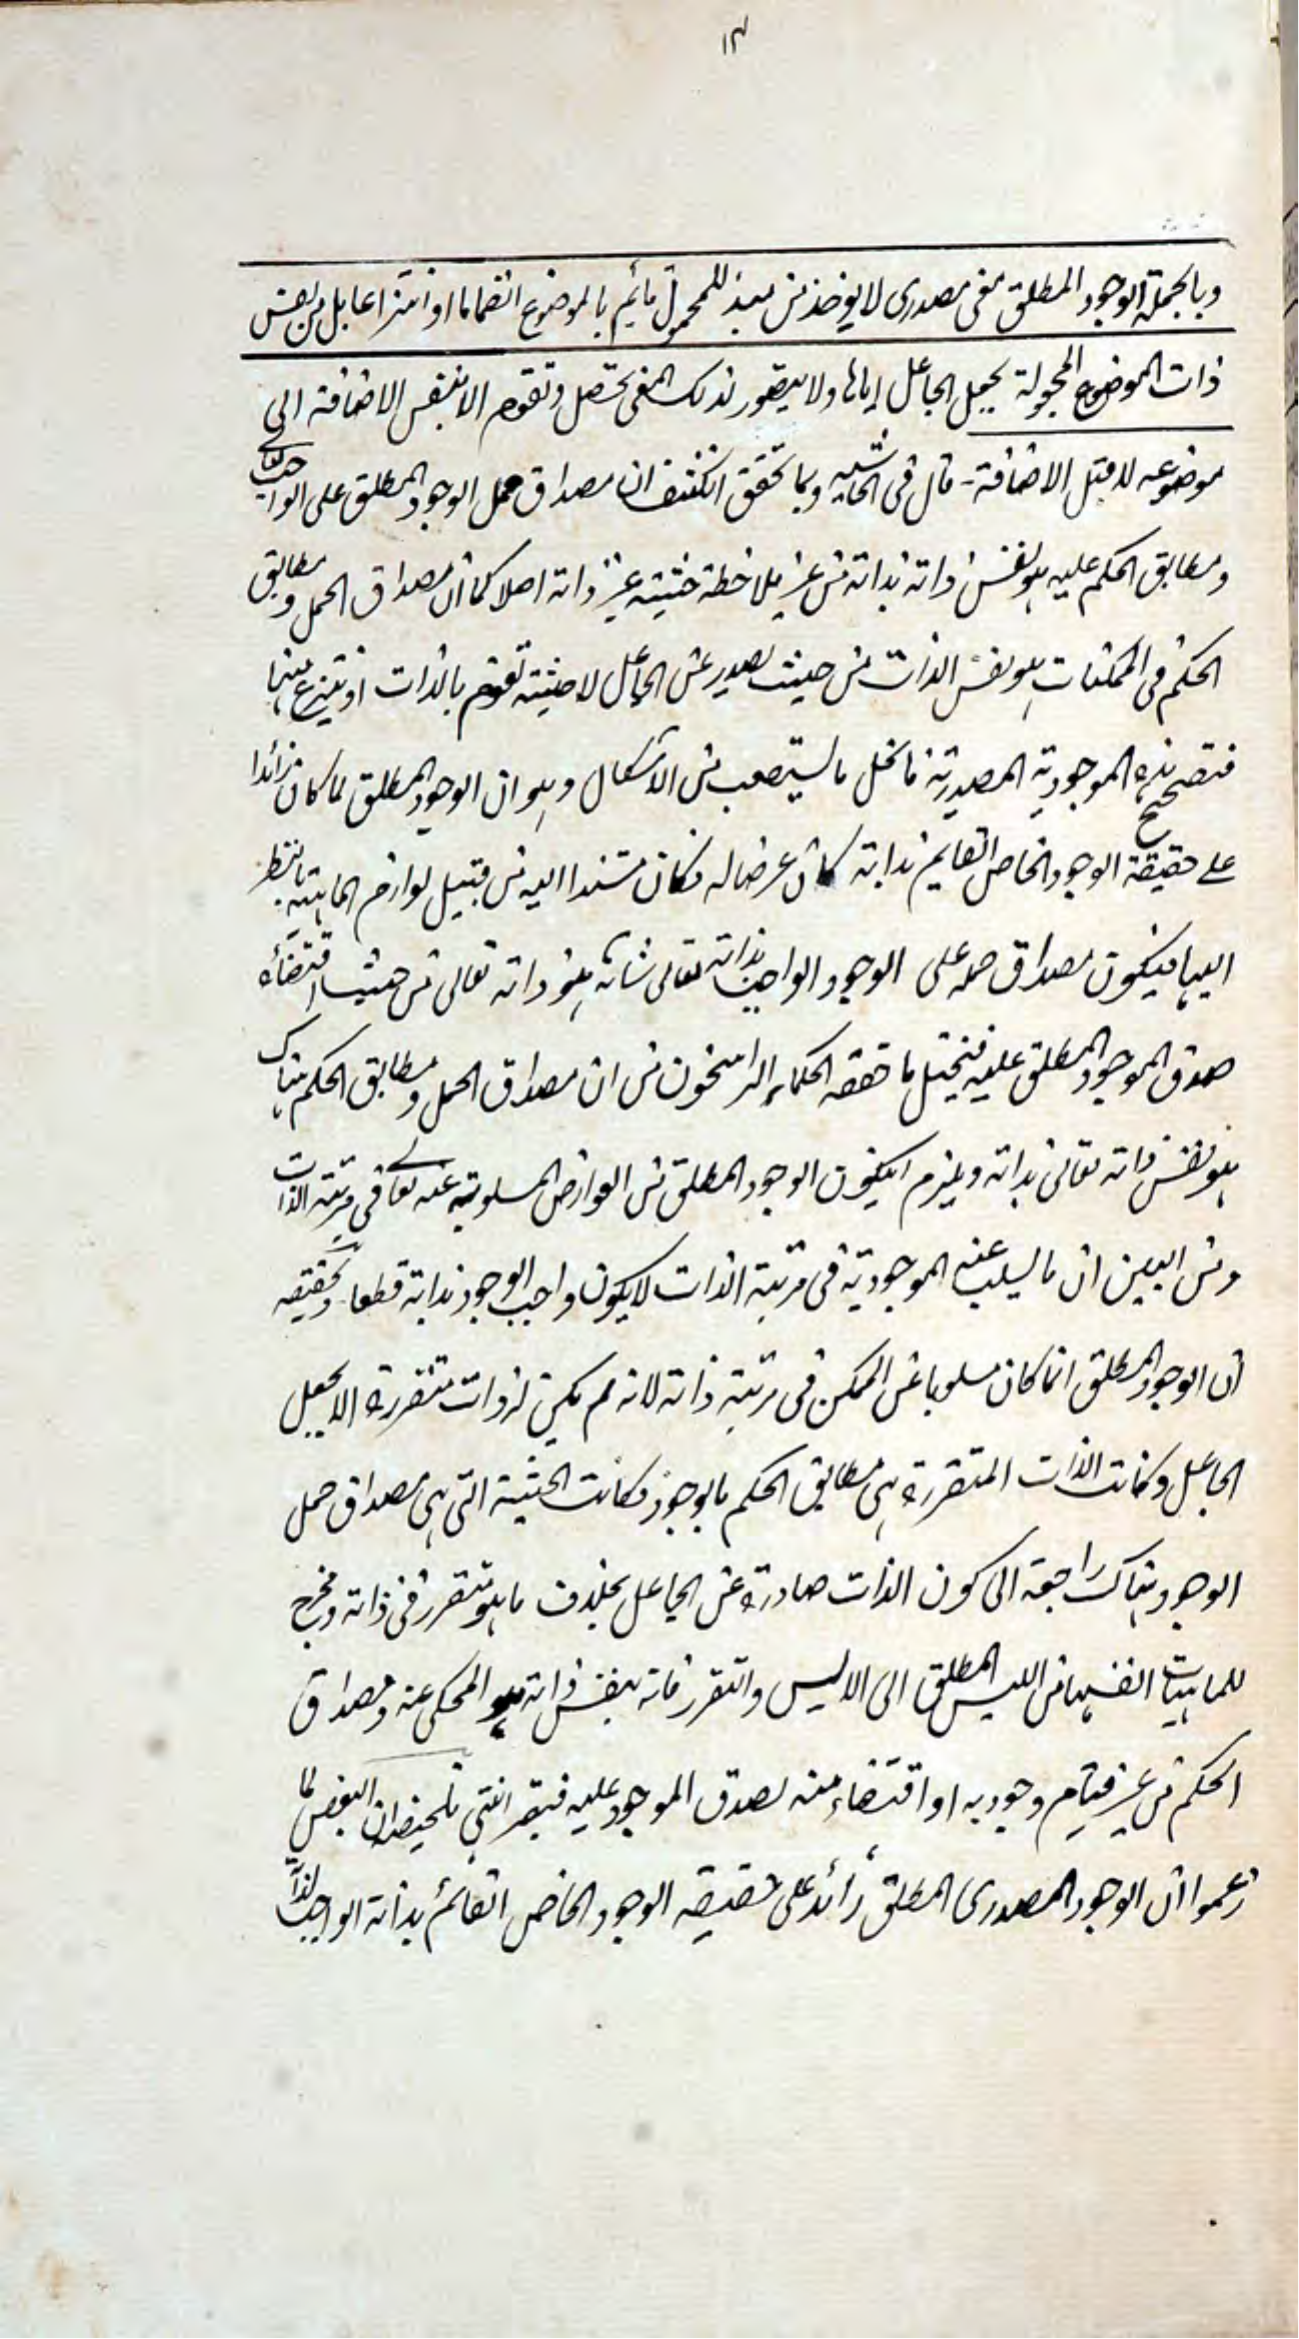 ١٣
وبالجملة الوجود المطلق معنى مصدرى لا يوخذ من مبدء للمحمول قائم بالموضوع انضماما او انتزاعا بل من نفس
ذات الموضوع المجعولة بجعل الجاعل اياها ولا يتصور لذلك المعنى تحصل وتقوم الا بنفس الاضافة الى
موضوعه لا قبل الاضافة - قال فى الحاشيه وبما تحقق انكشف ان مصداق حمل الوجود المطلق على الواجب تعالى
ومطابق الحكم عليه هو نفس ذاته بذاته من غير ملاحظة حيثية غير ذاته اصلا كما ان مصداق الحمل ومطابق
الحكم فى الممكنات هو نفس الذات من حيث يصدر عن الجاعل لا حيثية تقوم بالذات او تنتزع منها
فتصحح هذه الموجودية المصدرية فانحل ما يستصعب من الاشكال وهو ان الوجود المطلق لما كان زائدا
على حقيقة الوجود الخاص القايم بذاته كان عرضا له فكان مستندا اليه من قبيل لوازم الماهية بالنظر
اليها فيكون مصداق حمله على الوجود الواجب بذاته تعالى شانه هو ذاته تعالى من حيث اقتضائه
صدق الموجود المطلق عليه فيختل ما حققه الحكماء الراسخون من ان مصداق الحمل ومطابق الحكم هناك
هو نفس ذاته تعالى بذاته ويلزم ان يكون الوجود المطلق من العوارض المسلوبة عنه تعالى فى مرتبة الذات
ومن البين ان ما يسلب عنه الموجودية فى مرتبة الذات لا يكون واجب الوجود بذاته قطعا وتحقيقه
ان الوجود المطلق انما كان مسلوبا عن الممكن فى مرتبة ذاته لانه لم يكن له ذات متقررة الا بجعل
الجاعل وكانت الذات المتقررة هى مطابق الحكم بالوجود فكانت الحيثية التى هى مصداق حمل
الوجود هناك راجعة الى كون الذات صادرة عن الجاعل بخلاف ما هو متقرر فى ذاته ومخرج
للماهيات انفسها من الليس المطلق الى الايس والتقرر فانه بنفس ذاته هو المحكى عنه ومصداق
الحكم من غير قيام وجود به او اقتضاء منه لصدق الموجود عليه فتبصر انتهى تلخيصه ان البعض لما
زعموا ان الوجود المصدرى المطلق زائد على حقيقه الوجود الخاص القائم بذاته الواجب لذاته